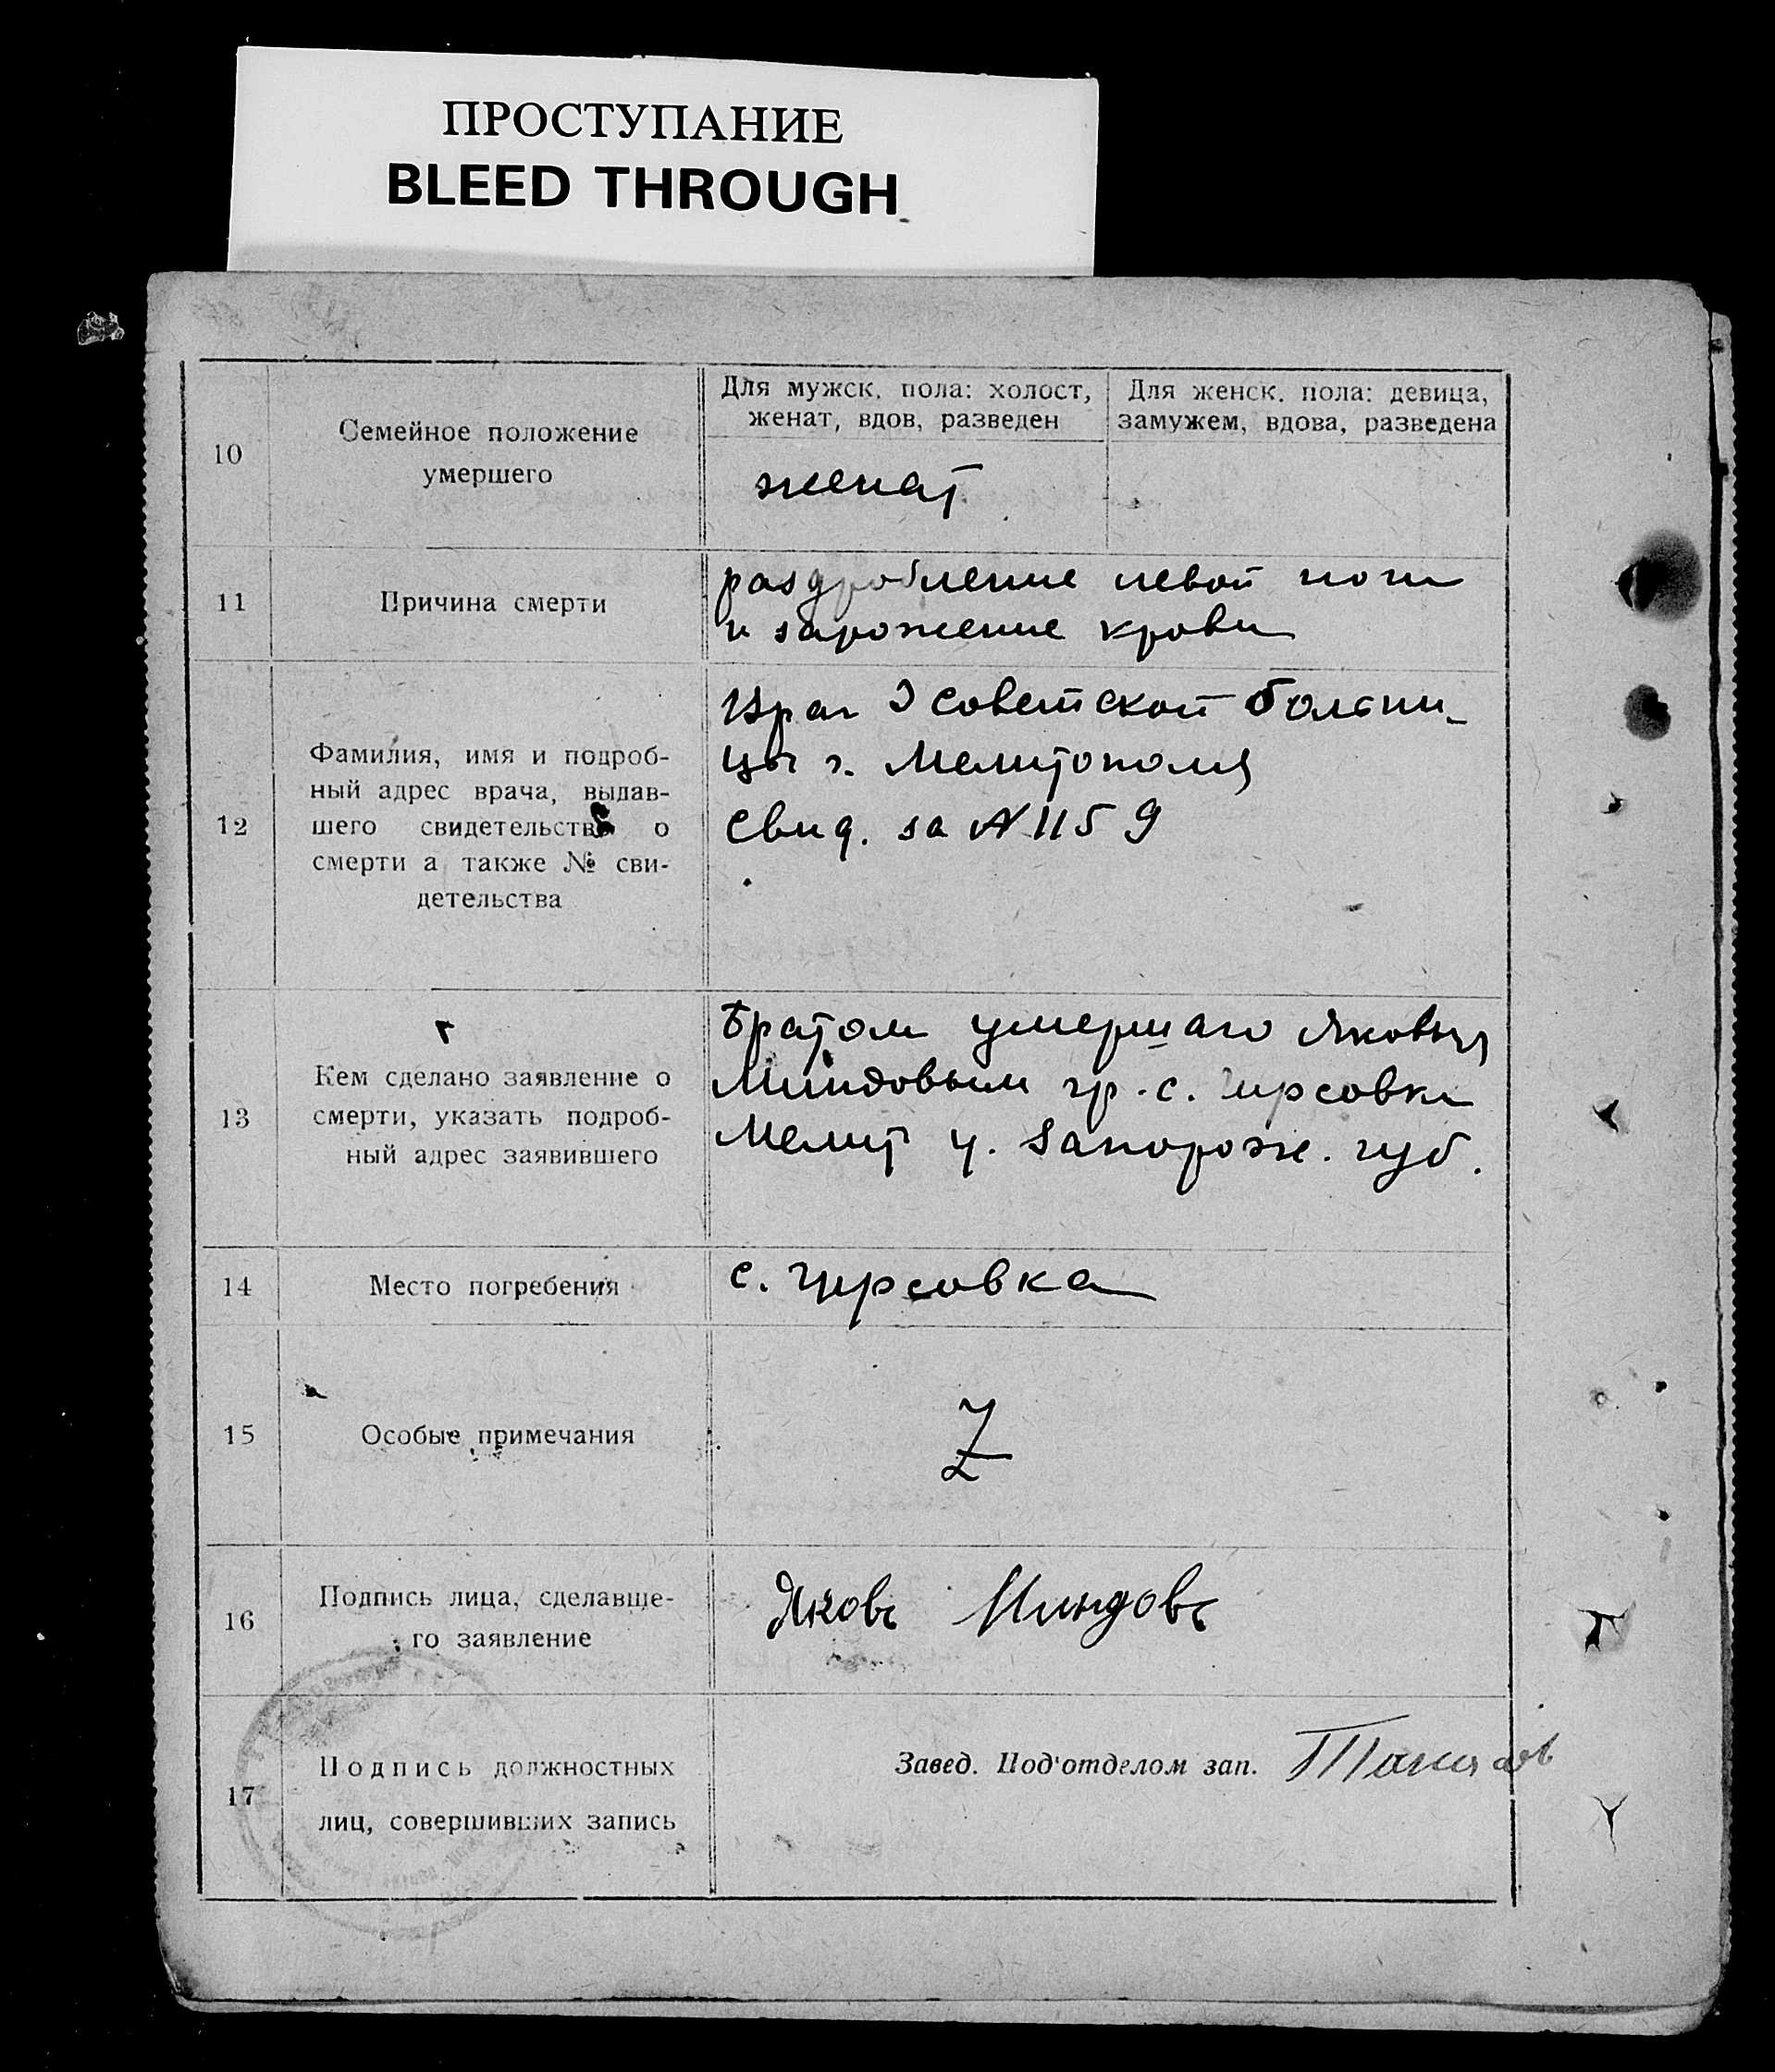 ПРОСТУПАНИЕ
BLEED THROUGH
10
Семейное положение
умершего
Для мужск. пола: холост,
женат, вдов, разведен
Для женск. пола: девица,
замужем, вдова, разведена
женат
11
Причина смерти
раздробление левой ноги
и заражение крови
12
Фамилия, имя и подроб-
ный адрес врача, выдав-
шего свидетельства о
смерти а также № сви-
детельства
Врач I советской больни-
цы г. Мелитополя
свид. за N 1159
13
Кем сделано заявление о
смерти, указать подроб-
ный адрес заявившего
Братом умершаго Яковым
Миндовым гр. с. Гирсовки
Мелит у. Запорож. губ.
14
Место погребения
с. Гирсовка
15
Особые примечания
Z
16
Подпись лица, сделавше-
го заявление
Яковъ Миндовъ
17
Подпись должностных
лиц, совершивших запись
Завед. Под'отделом зап.